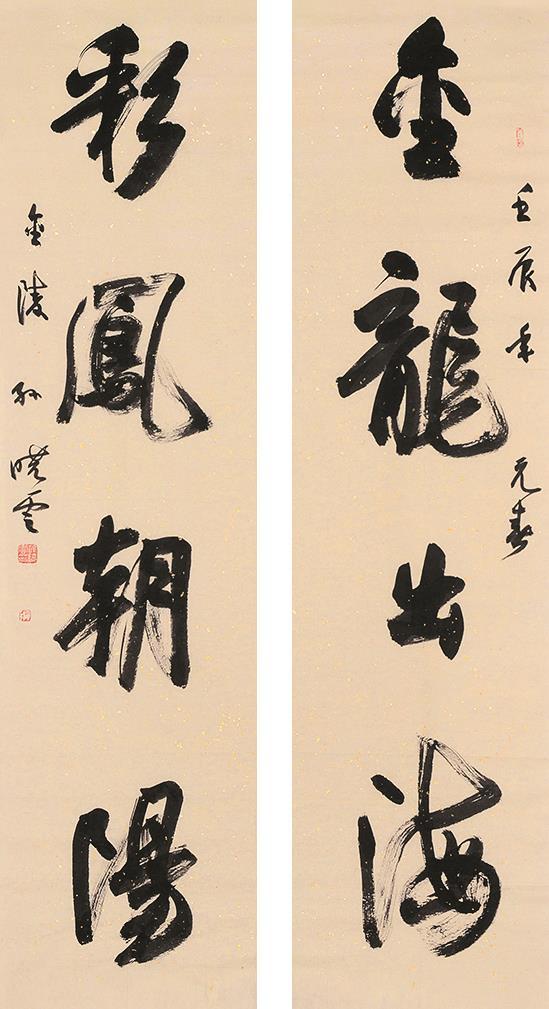 金龍出海
壬辰年 元春
彩鳳朝陽
金陵 孙曉雲